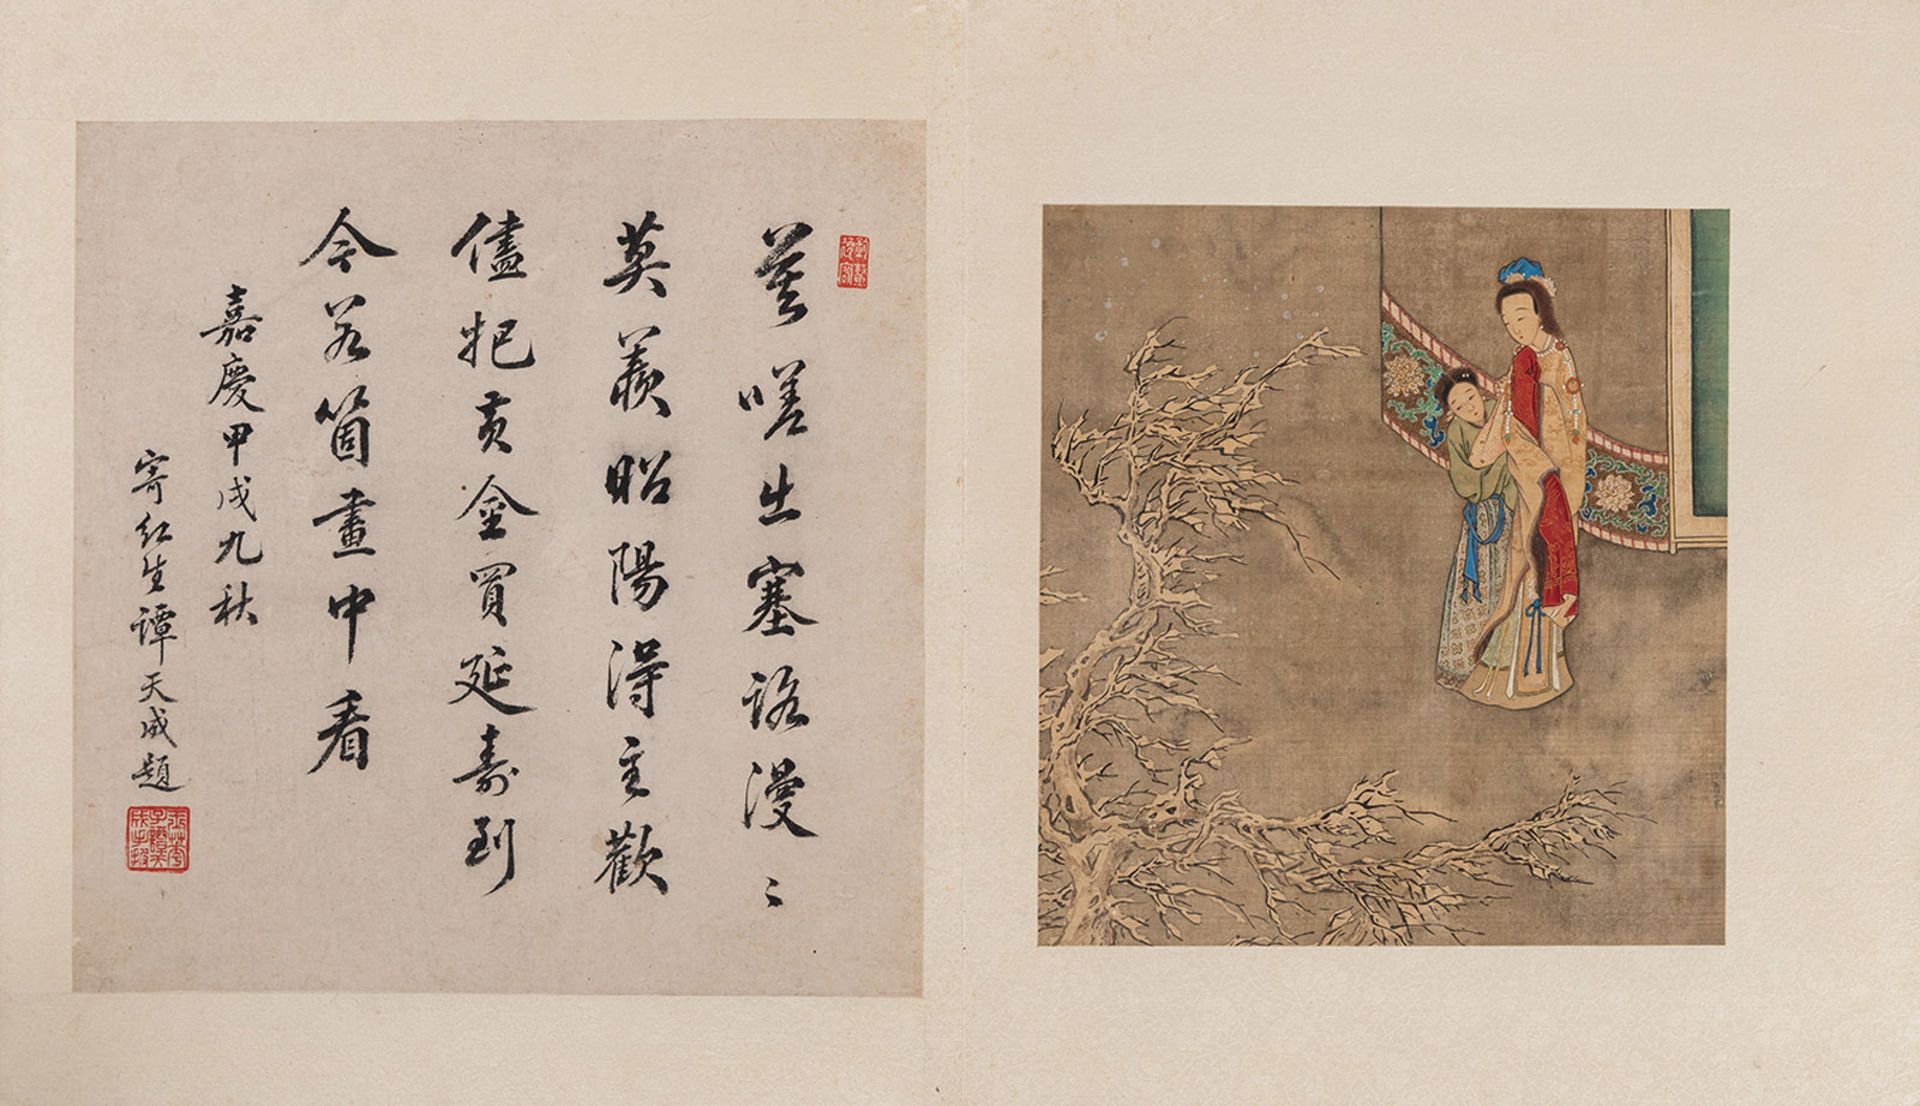 莫嗟出塞路漫〻
莫羨昭陽得主歡
儘把黃金買延壽到
今若箇畫中看
嘉慶甲戌九秋
寄紅生譚天成題